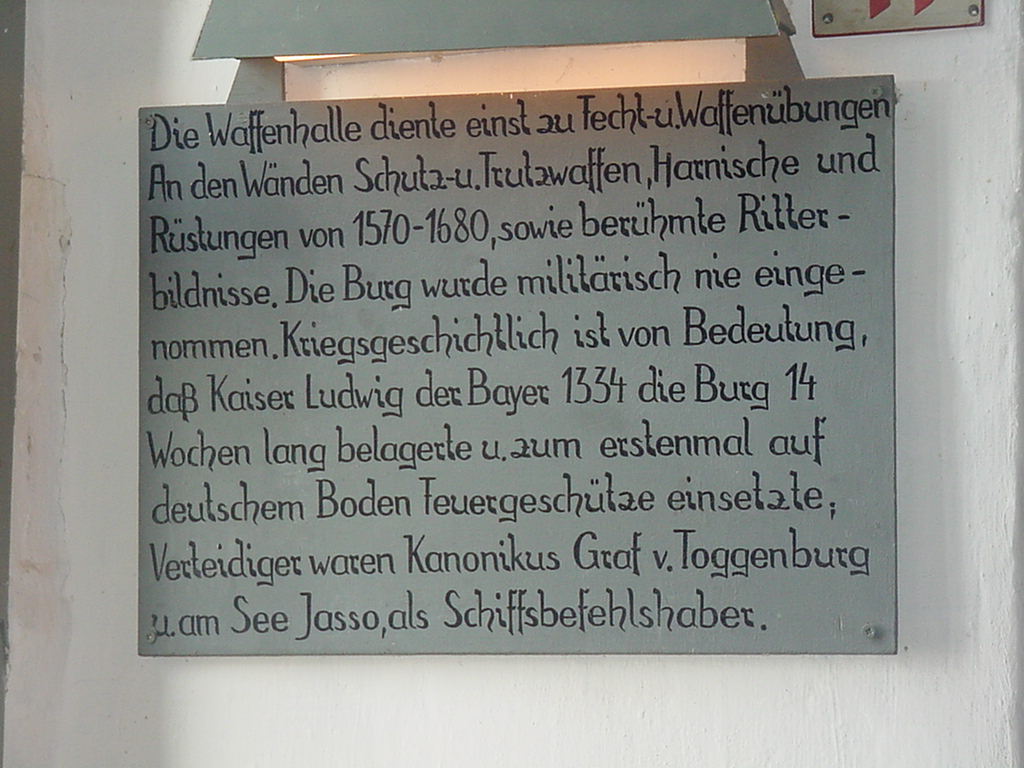 Die Waffenhalle diente einst zu Fecht-u.Waffenübungen
An den Wänden Schutz-u.Trutzwaffen, Harnische und
Rüstungen von 1570-1680, sowie berühmte Ritter-
bildnisse. Die Burg wurde militärisch nie einge-
nommen. Kriegsgeschichtlich ist von Bedeutung,
daß Kaiser Ludwig der Bayer 1334 die Burg 14
Wochen lang belagerte u. zum erstenmal auf
deutschem Boden Feuergeschütze einsetzte;
Verteidiger waren Kanonikus Graf v. Toggenburg
u. am See Jasso, als Schiffsbefehlshaber.